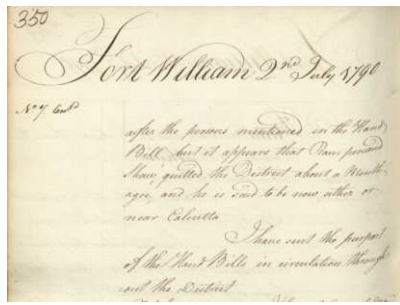 350
Fort William 2nd July 1790
No 7 Contd
after the persons mentioned in the Hand
Bill, but it appears that Ram persaud
Shaw, quitted the District about a Month
ago, and he is said to be now either or
near Calcutta
I have sent the purport
of the Hand Bills in circulation through
out the District